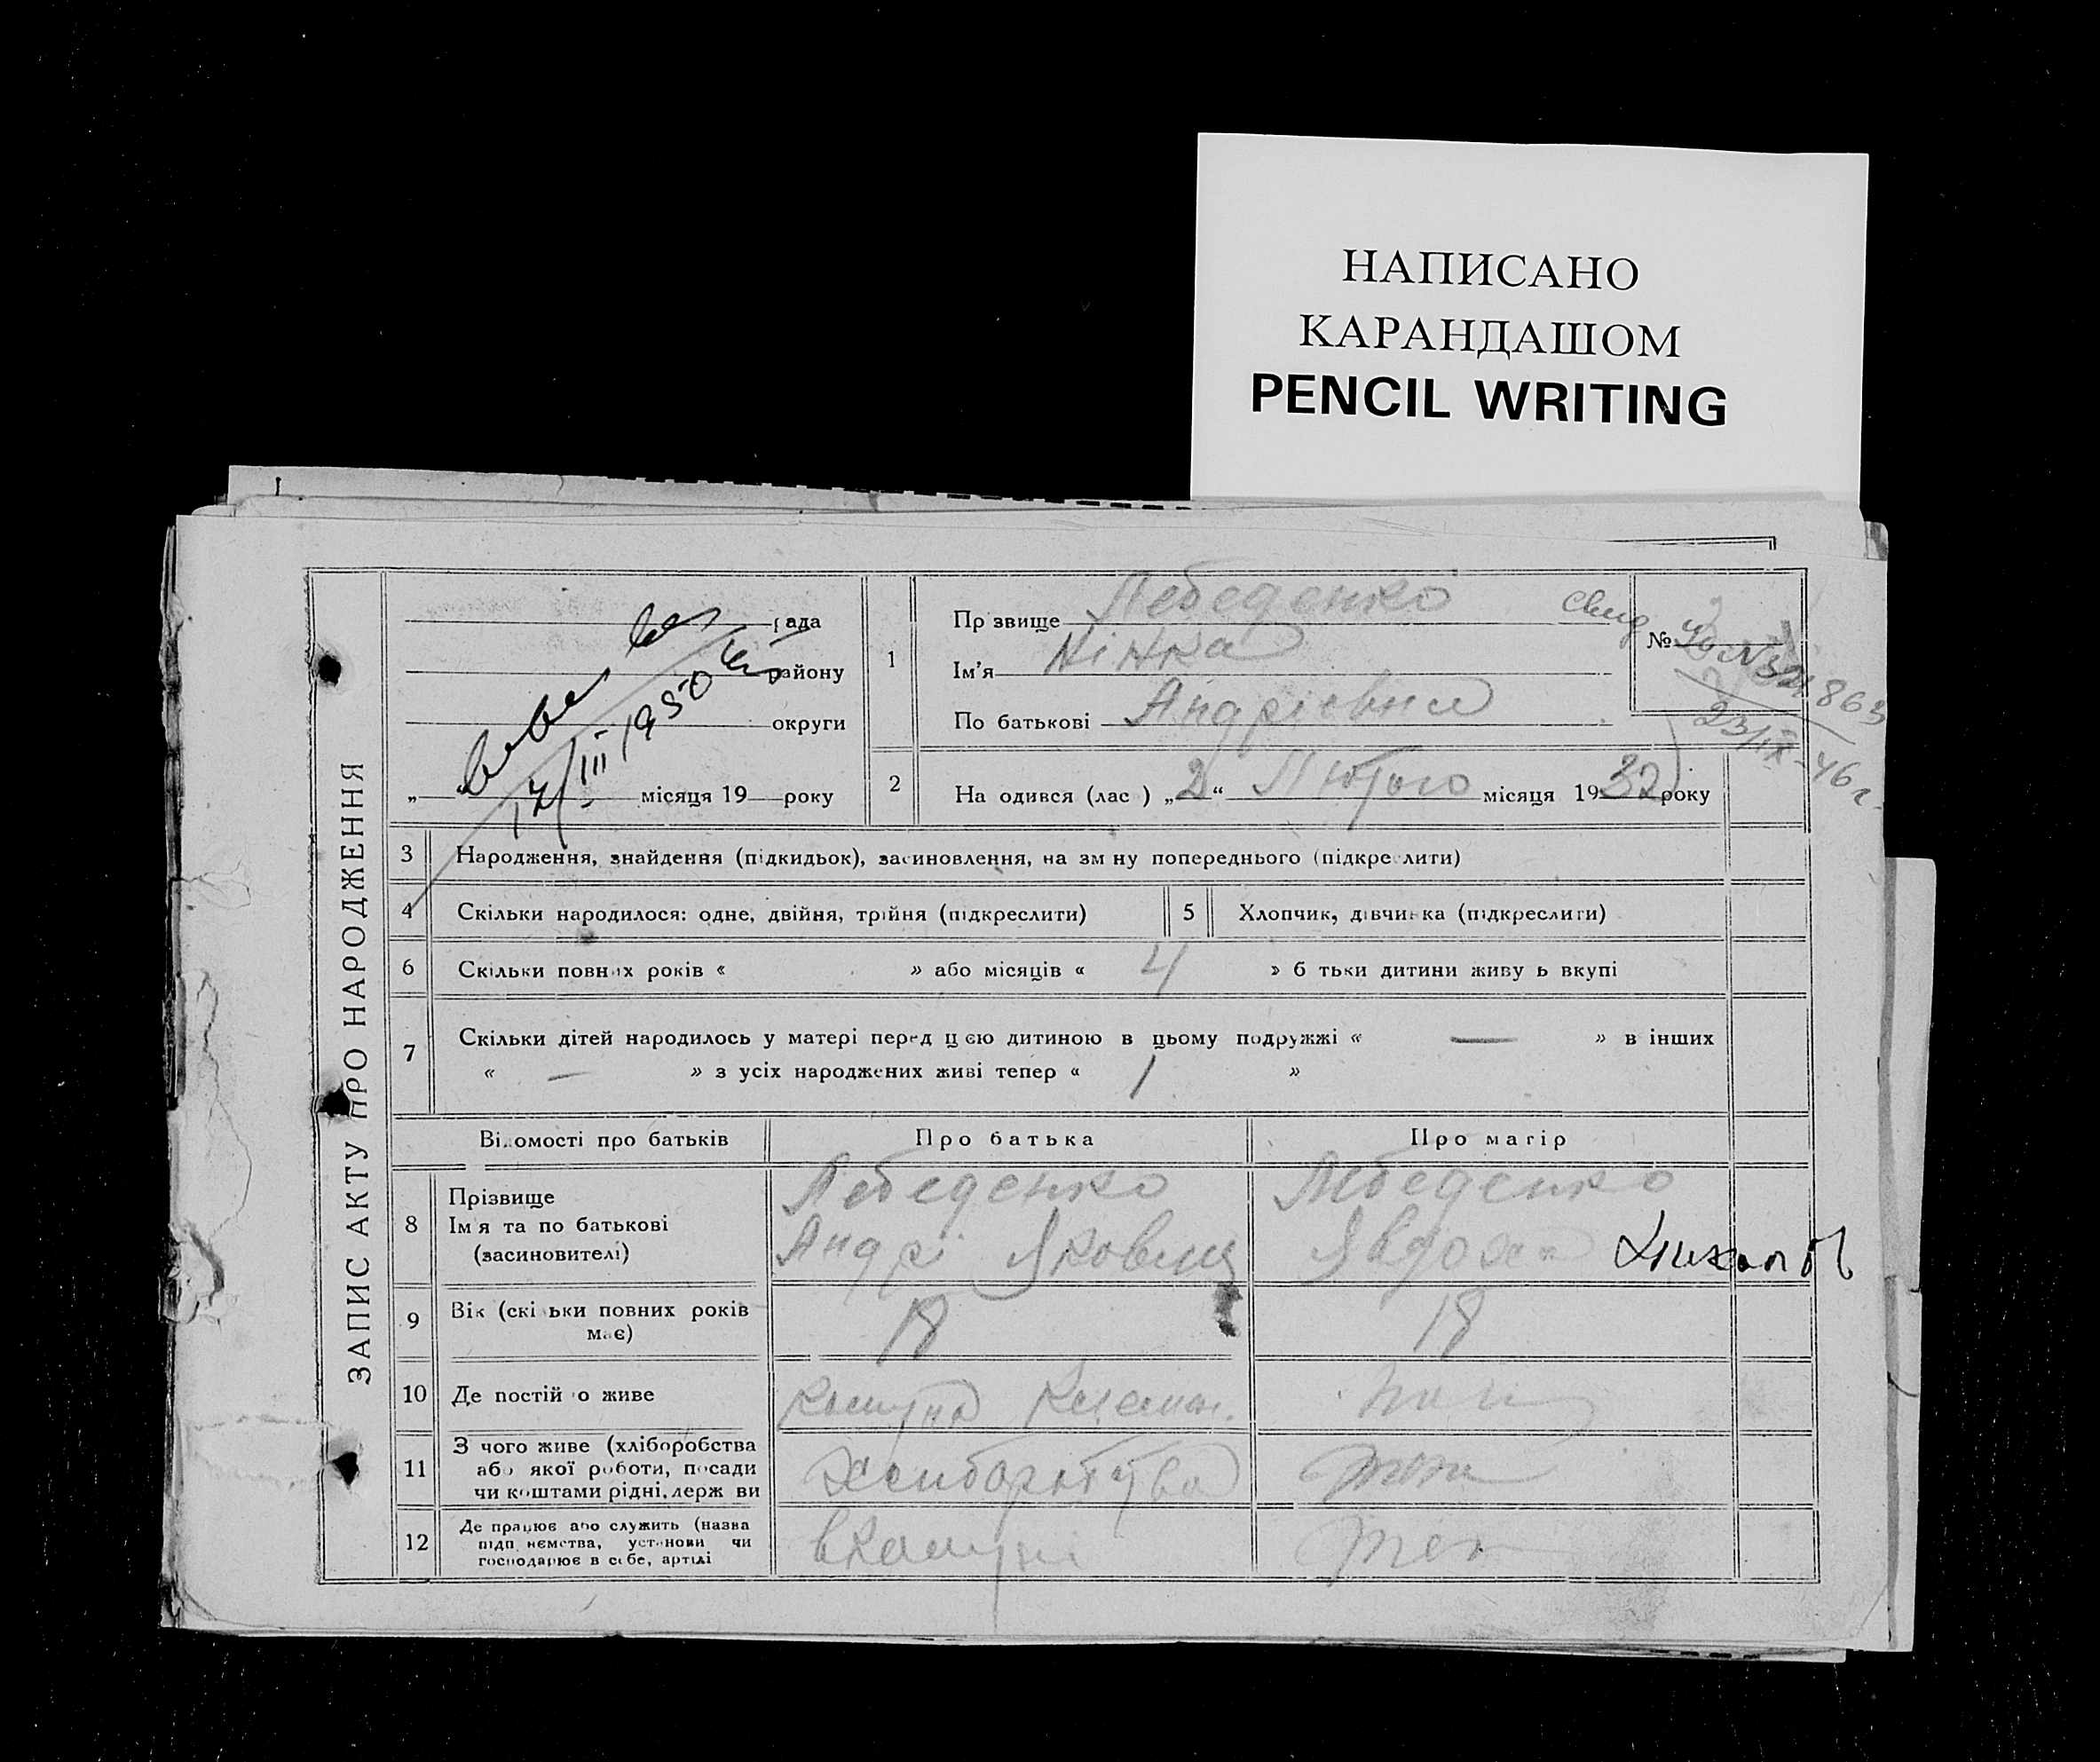 НАПИСАНО
КАРАНДАШОМ
PENCIL WRITING
ЗАПИС АКТУ ПРО НАРОДЖЕННЯ
рада
району
округи
„ місяця 19 року
14/III 1950
1
Пр звище Лебеденко
Ім’я Нінка
По батькові Андріевна
свид
№
321863
23/IX-46 г.
2
На одився (лас ) „2“ Лютого місяця 1932 року
3 Народження, знайдення (підкидьок), засиновлення, на зм ну попереднього (підкре лити)
4 Скільки народилося: одне, двійня, трійня (підкреслити)
5 Хлопчик, дівчинка (підкреслити)
6 Скільки повних років « » або місяців « 4 » б тьки дитини живу ь вкупі
7 Скільки дітей народилось у матері перед цією дитиною в цьому подружжі « — » в інших
« — » з усіх народжених живі тепер « 1 »
Відомості про батьків Про батька Про матір
8
Прізвище
Ім я та по батькові
(засиновителі)
Лебеденко
Андрі Якович
Лебеденко
Явдоха
9 Вік (скі ьки повних років
має)
18 18
10 Де постій о живе
комуна
11 З чого живе (хліборобства
або якої роботи, посади
чи коштами рідні, держ ви
12 Де працює або служить (назва
підп нємства, установи чи
господарює в себе, артілі
вкомуні